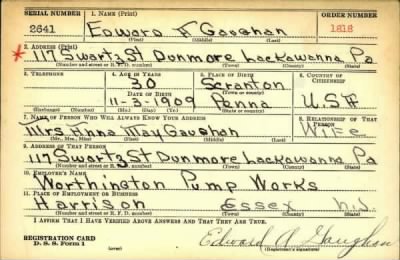 SERIAL NUMBER 1. NAME (Print) ORDER NUMBER
2641 Edward A Gaughan 1818
(First) (Middle) (Last)
2. ADDRESS (Print)
* 117 Swartz St Dunmore Lackawanna Pa
(Number and street or R. F. D. number) (Town) (County) (State)
3. TELEPHONE 4. AGE IN YEARS 5. PLACE OF BIRTH 6. COUNTRY OF CITIZENSHIP
30 Scranton
DATE OF BIRTH (Town or county)
11-3-1909 Penna U.S.A
(Exchange) (Number) (Mo.) (Day) (Yr.) (State or country)
7. NAME OF PERSON WHO WILL ALWAYS KNOW YOUR ADDRESS 8. RELATIONSHIP OF THAT PERSON
Mrs Anna May Gaughan Wife
(Mr., Mrs., Miss) (First) (Middle) (Last)
9. ADDRESS OF THAT PERSON
117 Swartz St Dunmore Lackawanna Pa
(Number and street or R. F. D. number) (Town) (County) (State)
10. EMPLOYER'S NAME
Worthington Pump Works
11. PLACE OF EMPLOYMENT OR BUSINESS
Harrison Essex N.J.
(Number and street or R. F. D. number) (Town) (County) (State)
I AFFIRM THAT I HAVE VERIFIED ABOVE ANSWERS AND THAT THEY ARE TRUE.
REGISTRATION CARD
D. S. S. Form 1 Edward A Gaughan